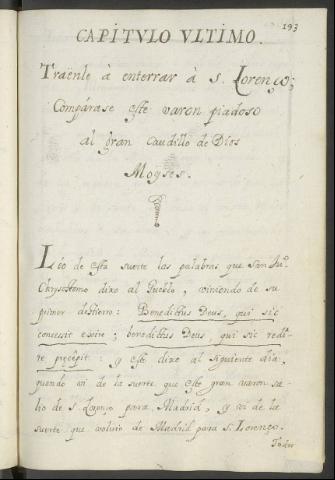 193
CAPÍTVLO VLTIMO.
Traénle à enterrar à S. Lorenço;
Compárase este varon piadoso
al gran Caudillo de Dios
Moyses.
Léo de esta suerte las palabras que San Juº.
Chrysostomo dixo al Pueblo, viniendo de su
primer destierro: Benedictus Deus, qui sic
concessit exire; benedictus Deus, qui sic redi-
re precepit: y este dixo al siguiente dia,
quando vi de la suerte que este gran varon sa-
lio de S. Lorenço para Madrid, y vi de la
suerte que volvio de Madrid para S. Lorenço.
Todos